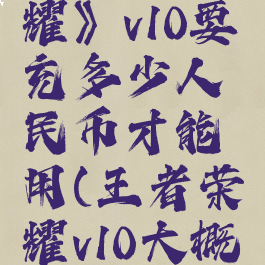 耀》v10要
充多少人
民币才能
用(王者荣
耀v10大概